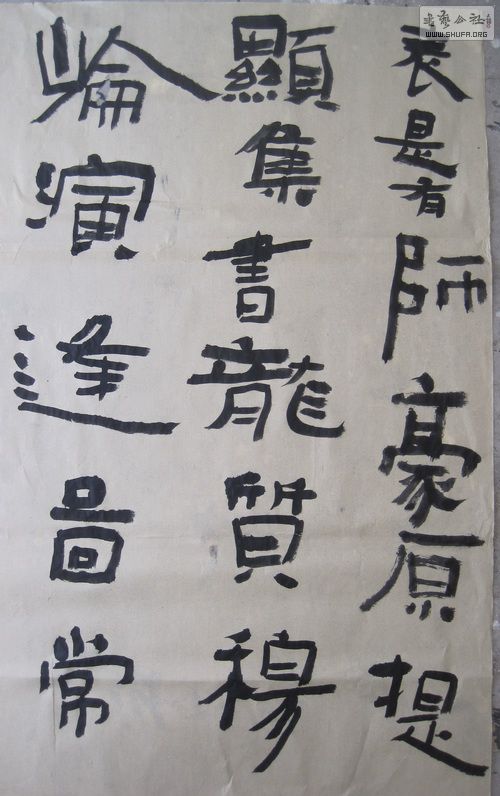 是有師豪原提
顯集書龍質
崘演逢啚常
书艺公社
WWW.SHUFA.ORG